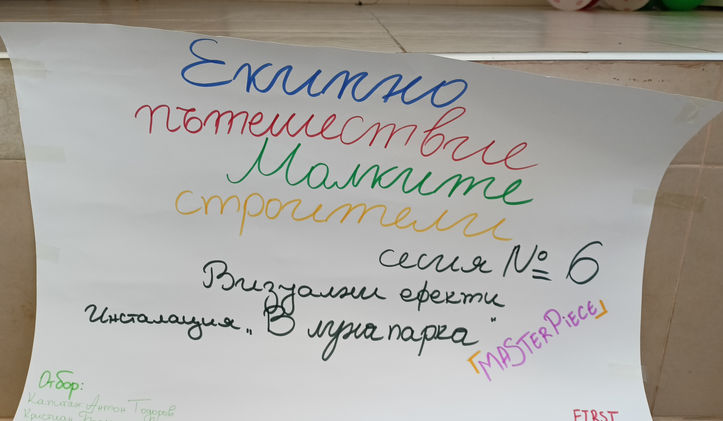 Екипно
пътешествие
Малките
строители
сесия № 6
Визуални ефекти
Инсталация „В лунапарка“
「MASTERPiECE」
Отбор:
Капитан Антон Тодоров
Кристиан
FIRST